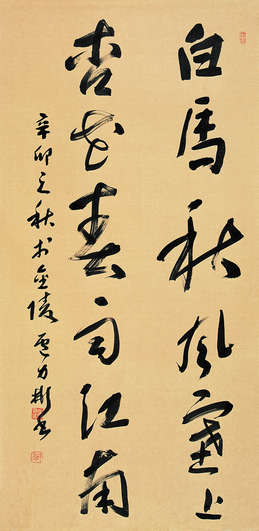 白馬秋風塞上
杏花春雨江南
辛卯之秋於金陵 力彬書